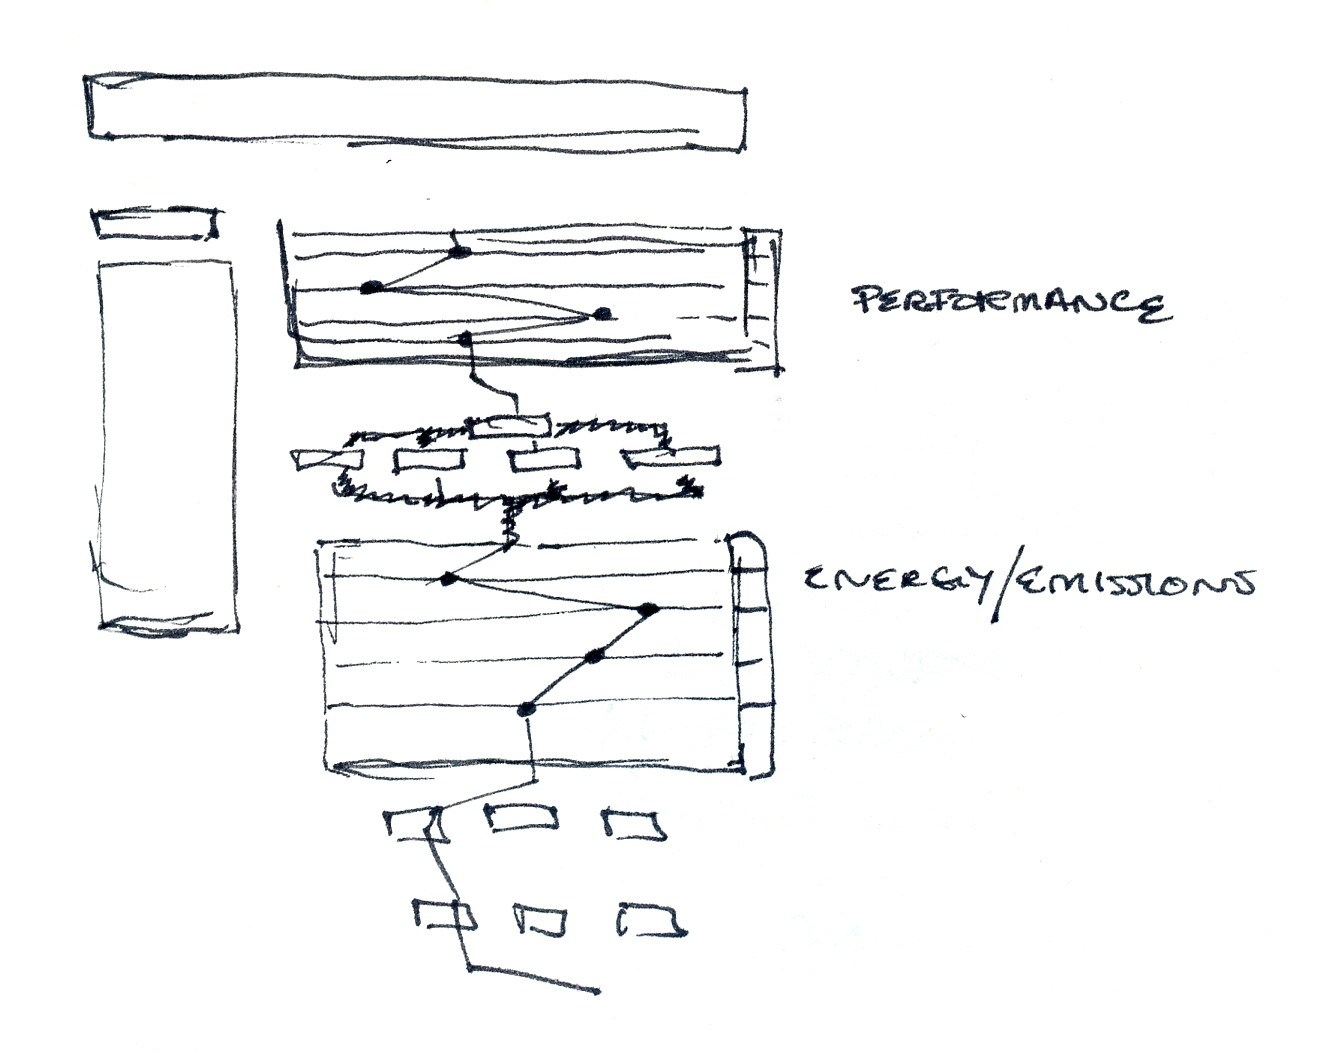 PERFORMANCE
ENERGY/EMISSIONS